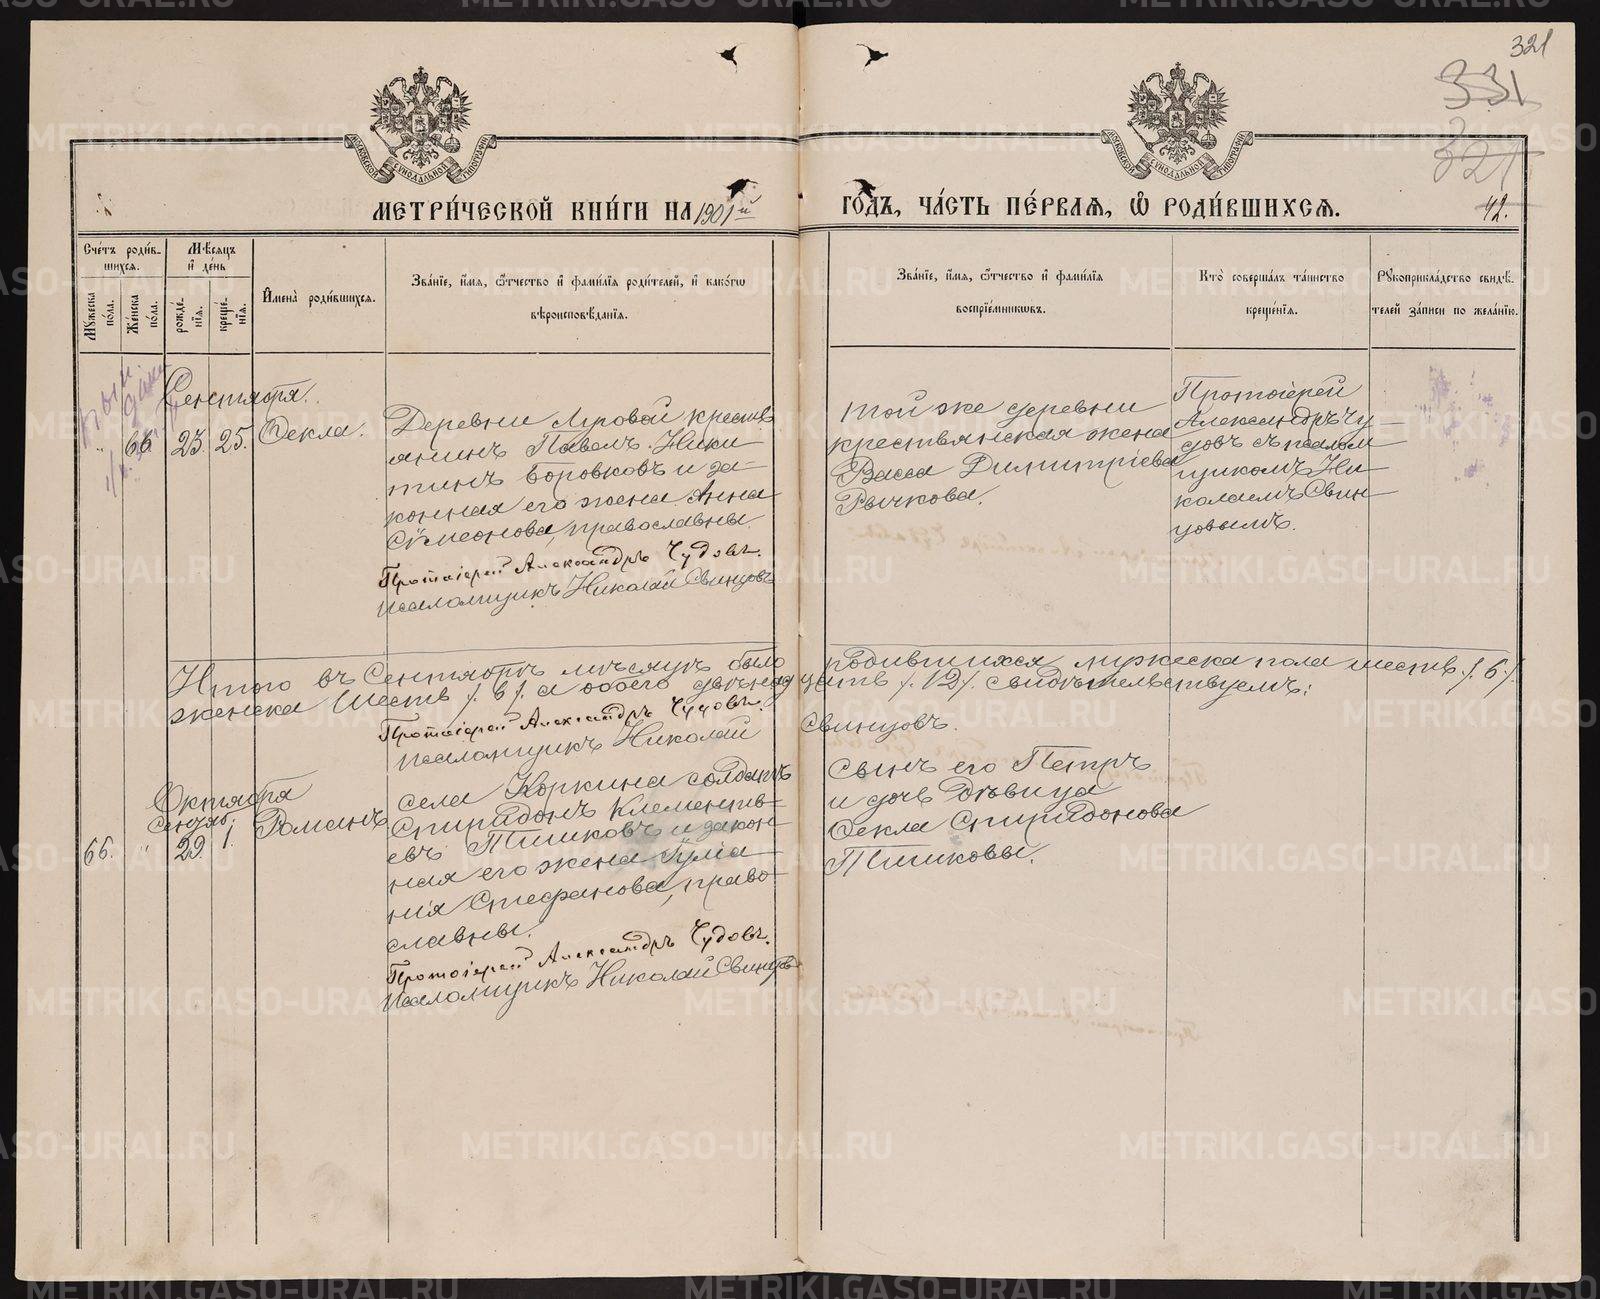 321
331
321
МЕТРИ́ЧЕСКОЙ КНИ́ГИ НА 1901 й ГО́ДЪ, ЧА́СТЬ ПЕ́РВАѦ, Ѡ РОДИ́ВШИХСѦ.
42.
Сче́тъ роди́в-
шихся.
Мꙋжеска по́ла.
Же́нска по́ла.
Мѣ́сяцъ и де́нь
рожде́-нїя.
креще́-нїя.
Имена̀ роди́вшихся.
Зва́нїе, и́мя, ѻ́тчество и фами́лїя роди́телей, и како́гѡ
вѣроисповѣ́данїя.
Зва́нїе, и́мя, ѻ́тчество и фами́лїя
воспрїе́мникѡвъ.
Кто̀ соверша́лъ та́инство
креще́нїя.
Рꙋкоприкла́дство свидѣ́-
телей за́писи по жела́нїю.
Сентября.
" 66 23. 25. Ѳекла.
Деревни Яровой крестья-
янинъ Павелъ Ники-
тинъ Боровковъ и за-
конная его жена Анна
Сѵмеонова, православны.
Протоіерей Александръ Чудовъ.
псаломщикъ Николай Свинцовъ
той же деревни
крестьянская жена
Васса Димитріева
Рычкова.
Протоіерей
Александръ Чу-
довъ съ псалом
щикомъ Ни-
колаемъ Свин-
цовымъ.
Итого въ Сентябрѣ мѣсяцѣ было родившихся мужеска пола шесть /6/.
женска шесть /6/ а обоего двѣнадцать /12/. свидѣтельствуемъ:
Протоіерей Александръ Чудовъ.
псаломщикъ Николай Свинцовъ.
Октября
Сентяб.
66. " 29. 1. Романъ
села Коркина солдатъ
Спиридонъ Клементь-
евъ Птиковъ и закон-
ная его жена Іуліа-
нія Стефанова, право-
славны.
Протоіерей Александръ Чудовъ.
псаломщикъ Николай Свинцовъ
Сынъ его Петръ
и дочь дѣвица
Ѳекла Спиридонова